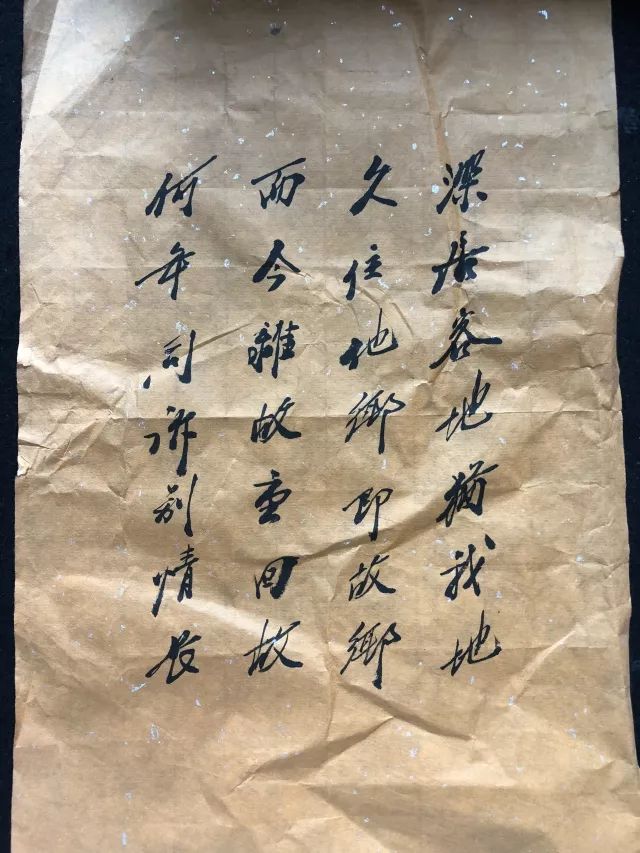 深居客地犹我地
久住他鄉即故鄉
而今離故重回故
何年同訴别情长